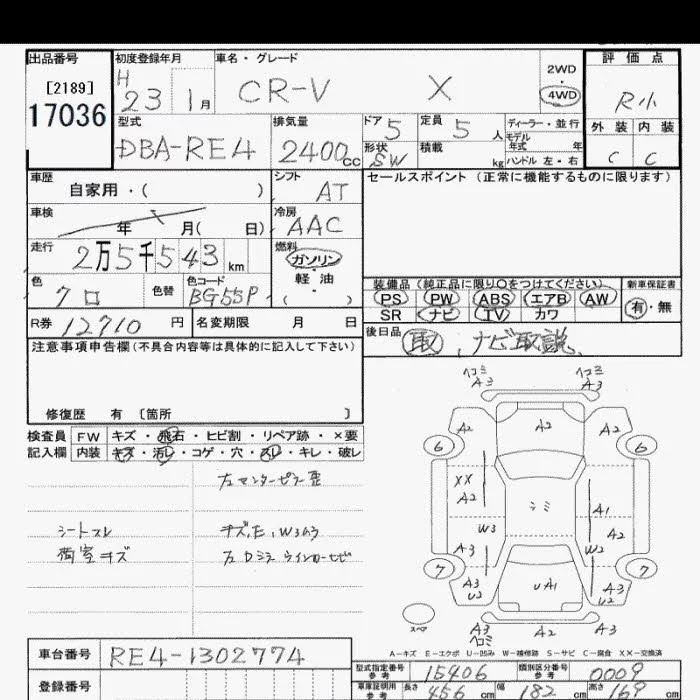 出品番号 初度登録年月 車名・グレード 評価点
[2189] H 23 1月 CR-V X 2WD ・ 4WD R小
17036
型式 排気量 ドア 定員 ディーラー・並行 外装 内装
DBA-RE4 2400cc 5 5人 モデル年式 年 C C
形状 SW 積載 kg ハンドル 左・右
車歴 シフト セールスポイント (正常に機能するものに限ります)
自家用・( ) AT
車検 冷房
年 月( 日) AAC
走行 燃料
2万5千543km ガソリン
色 色替 色コード 軽油
クロ BG55P ・( )
装備品(純正品に限り○をつけてください) 新車保証書
PS PW ABS エアB AW 有・無
SR ナビ TV カワ
R券 12710円 名変期限 月 日
後日品 取、ナビ取説
注意事項申告欄(不具合内容等は具体的に記入して下さい)
修復歴 有 〔箇所 〕
検査員 FW キズ・飛石・ヒビ割・リペア跡・×要
記入欄 内装 キズ・汚レ・コゲ・穴・スレ・キレ・破レ
左センターピラー歪
シートスレ キズ,E,W3ムラ
荷室キズ 左Dミラーウインカーヒビ
ヘコミ A3 ヘコミ A3
A2 A2 A2
6 6
XX A2 ミミ A1
W3 A2
A3 W2
7 7
A3 U2 UA1 A3 U2
スペア A3 ヘコミ A2 A3
A-キズ E-エクボ U-凹み W-補修跡 S-サビ C-腐食 XX-交換済
車台番号 RE4-1302774
登録番号
型式指定番号 参考 15406 類別区分番号 参考 0009
車庫証明用 参考 長さ 456cm 幅 182cm 高さ 169cm